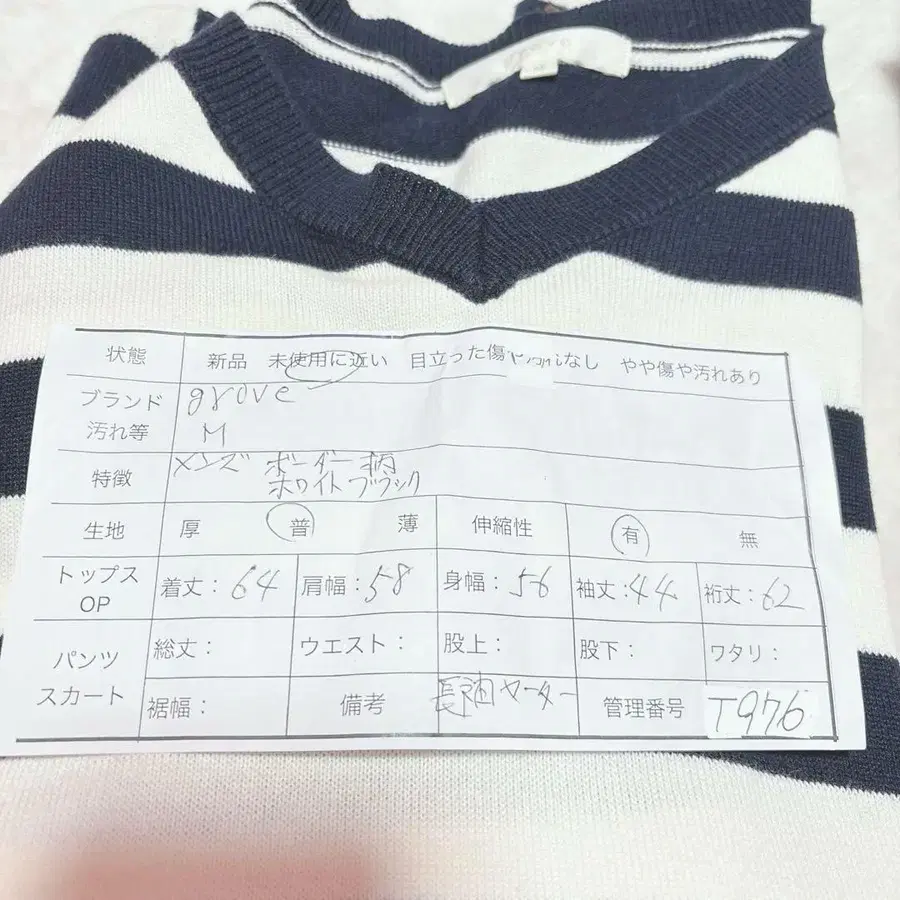 状態 新品 未使用に近い 目立った傷 なし やや傷や汚れあり
ブランド grove
汚れ等 M
特徴 メンズ ボーダー柄
ホワイトブラック
生地 厚 普 薄 伸縮性 有 無
トップス OP 着丈:64 肩幅:58 身幅:56 袖丈:44 裄丈:62
パンツ スカート 総丈: ウエスト: 股上: 股下: ワタリ:
裾幅: 備考 長袖セーター 管理番号 T976